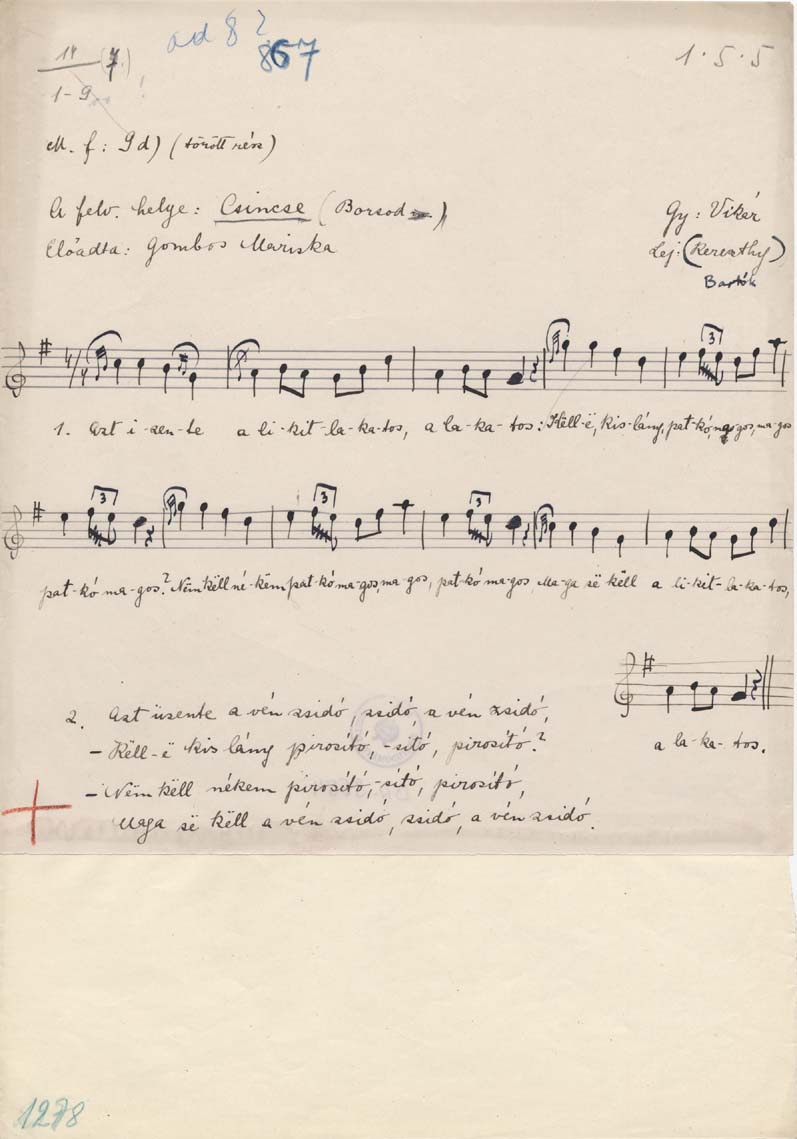 ad 8? 867
14 (7.) 1 · 5 · 5
1-9
M. f: 9d) (törött rész)
A felv. helye: Csincse (Borsod) Gy: Vikár
Előadta: Gombos Mariska Lej: (Kerenthy)
Bartók
4/4 3
1. Azt i-zen-te a li-kit-la-ka-tos, a la-ka-tos: Këll-ë, kis-lány, pat-kó, magos, ma-gos
3 3 3
pat-kó ma-gos? Nëm këll né-këm pat-kó ma-gos, ma-gos, pat-kó ma-gos, Ma-ga së këll a li-kit-la-ka-tos,
a la-ka-tos.
2. Azt üzente a vén zsidó, zsidó, a vén zsidó,
- Këll-ë kis lány pirosító, -sító, pirosító?
- Nëm këll nékem pirosító, -sító, pirosító,
Maga së këll a vén zsidó, zsidó, a vén zsidó.
1278